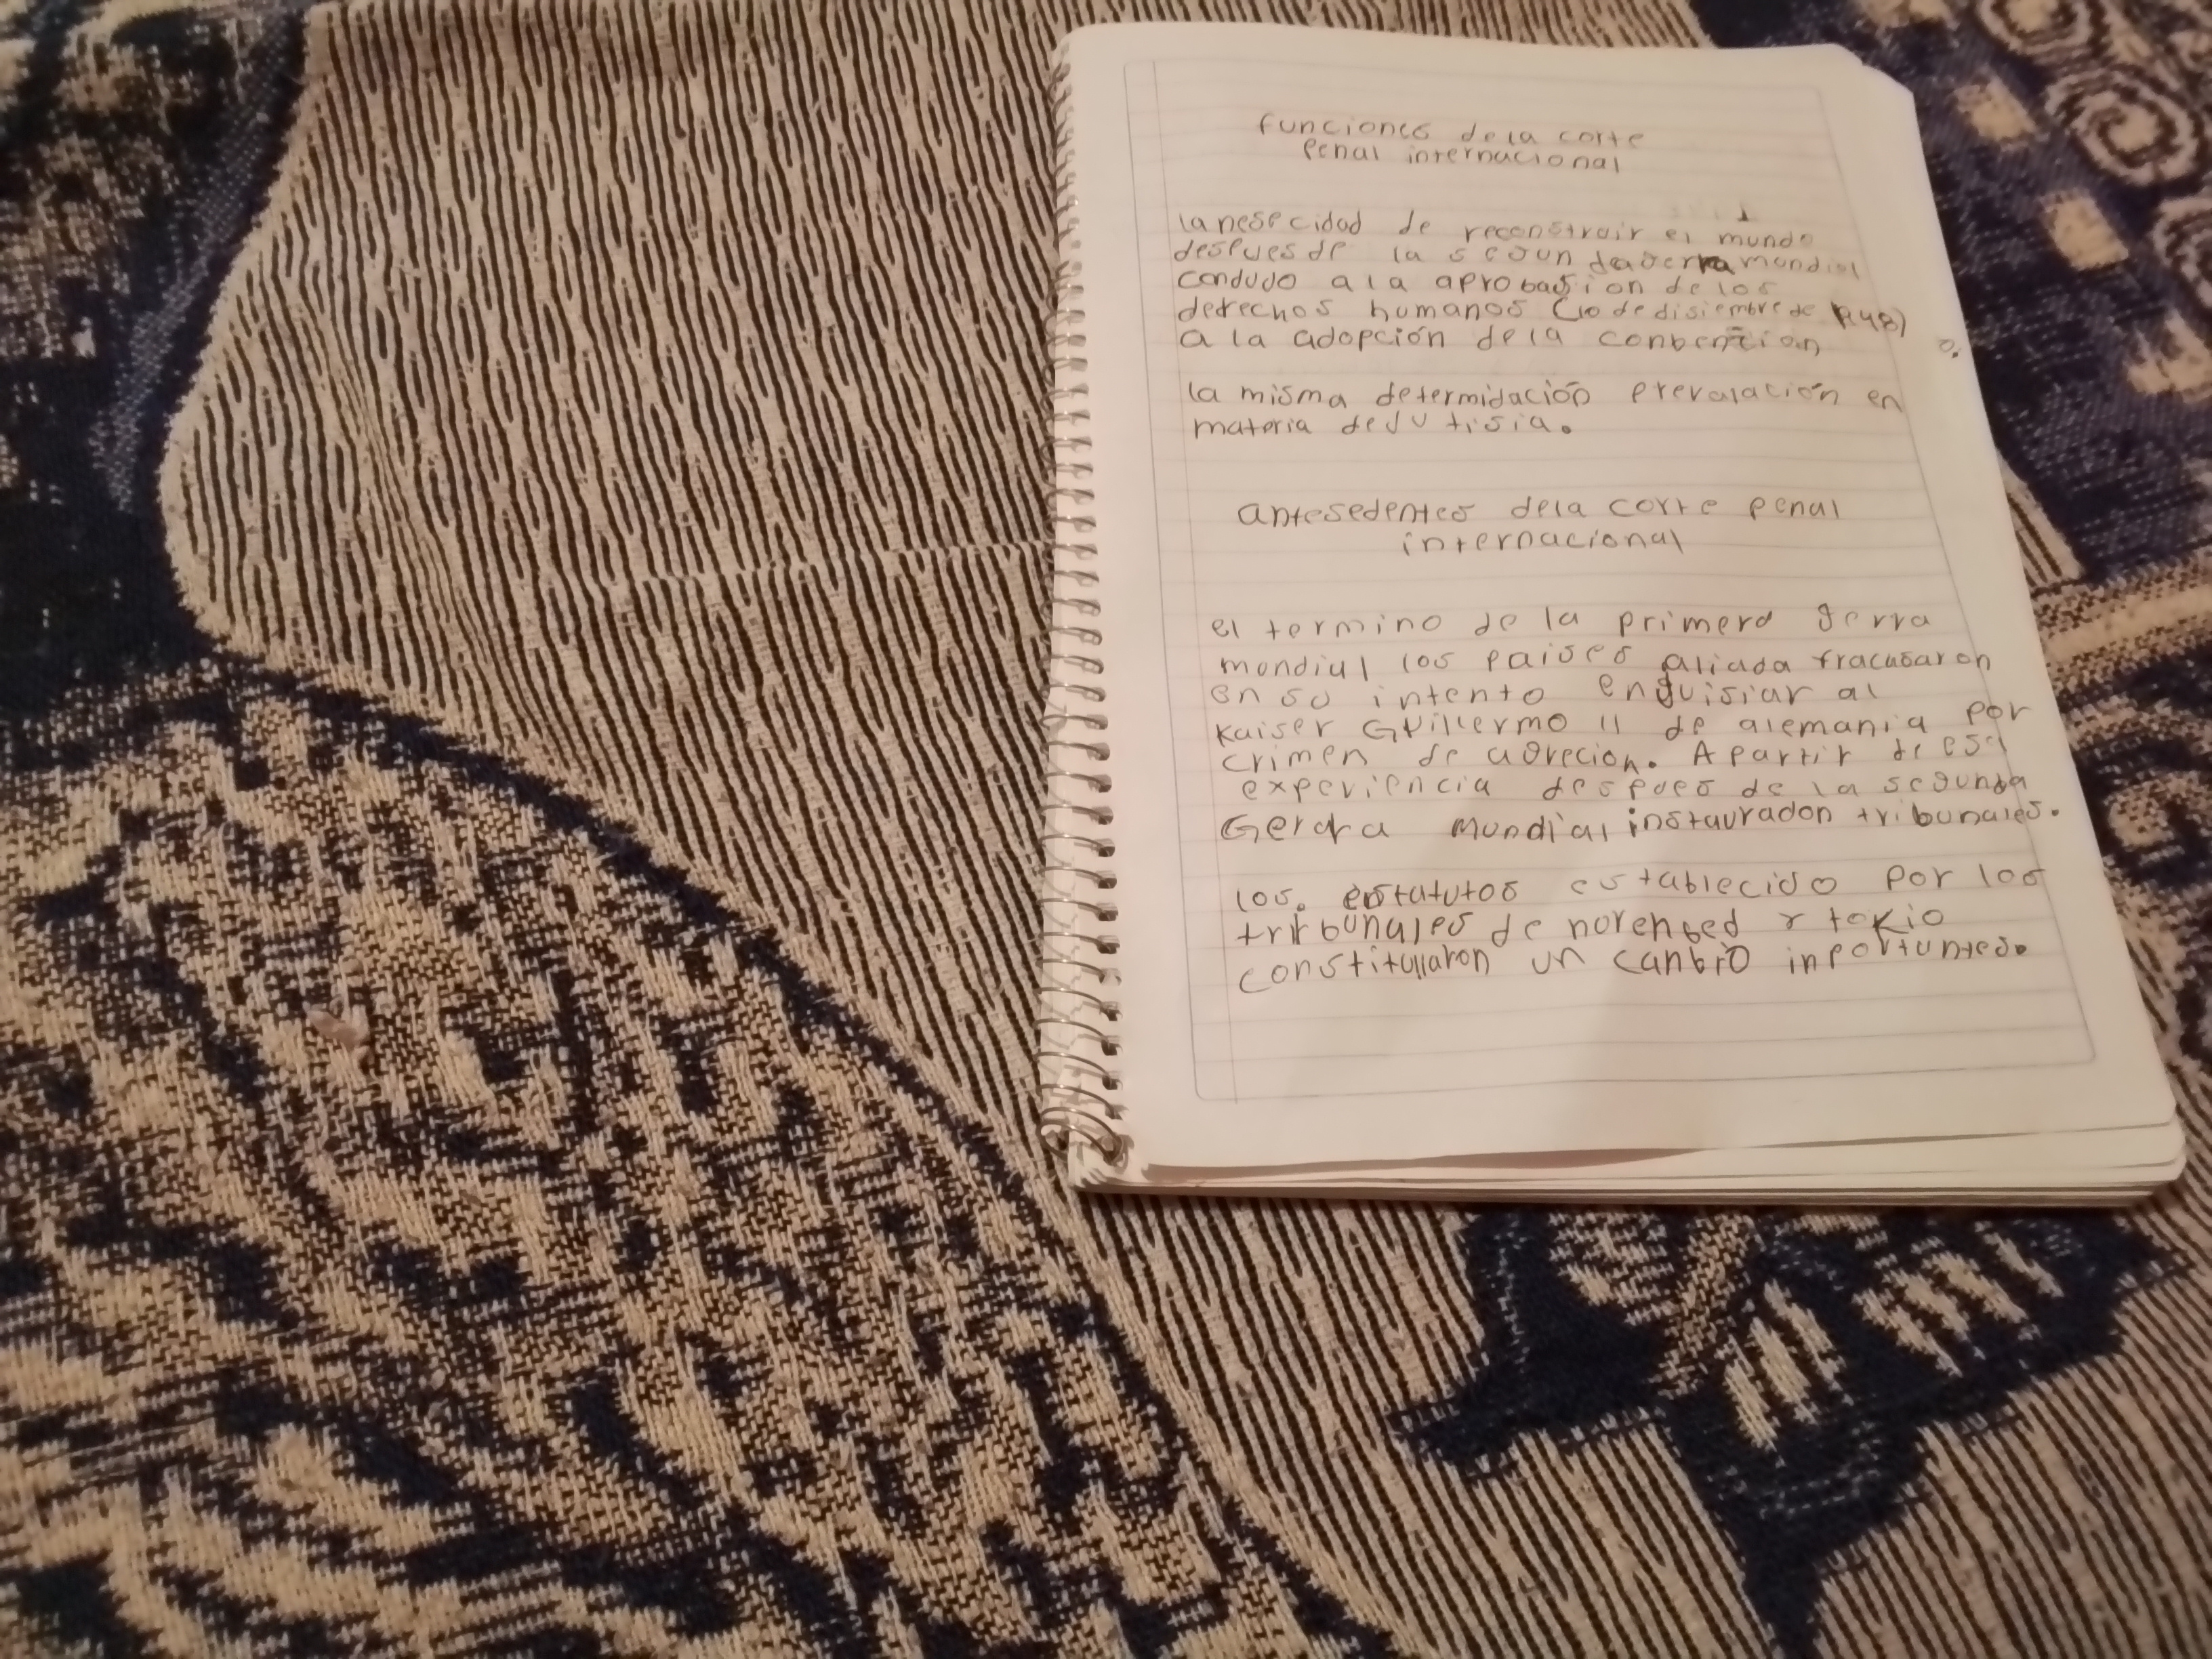 funciones de la corte
penal internacional
la nesecidad de reconstruir el mundo
despues de la segunda gerra mundial
condudo a la aprobasion de los
derechos humanos (10 de disiembre de 1948)
a la adopción de la conbencion
la misma determidación prevalación en
materia de Jutisia.
antesedentes de la corte penal
internacional
el termino de la primera gerra
mondial los paises aliada fracasaron
en su intento enguisiar al
Kaiser Guillermo II de alemania por
crimen de agrecion. A partir de esa
experiencia despues de la segunda
Gerara Mundial instauradon tribunales.
los. estatutos establecido por los
tribunales de norenbed y tokio
constitullaron un canbio inportuntedo